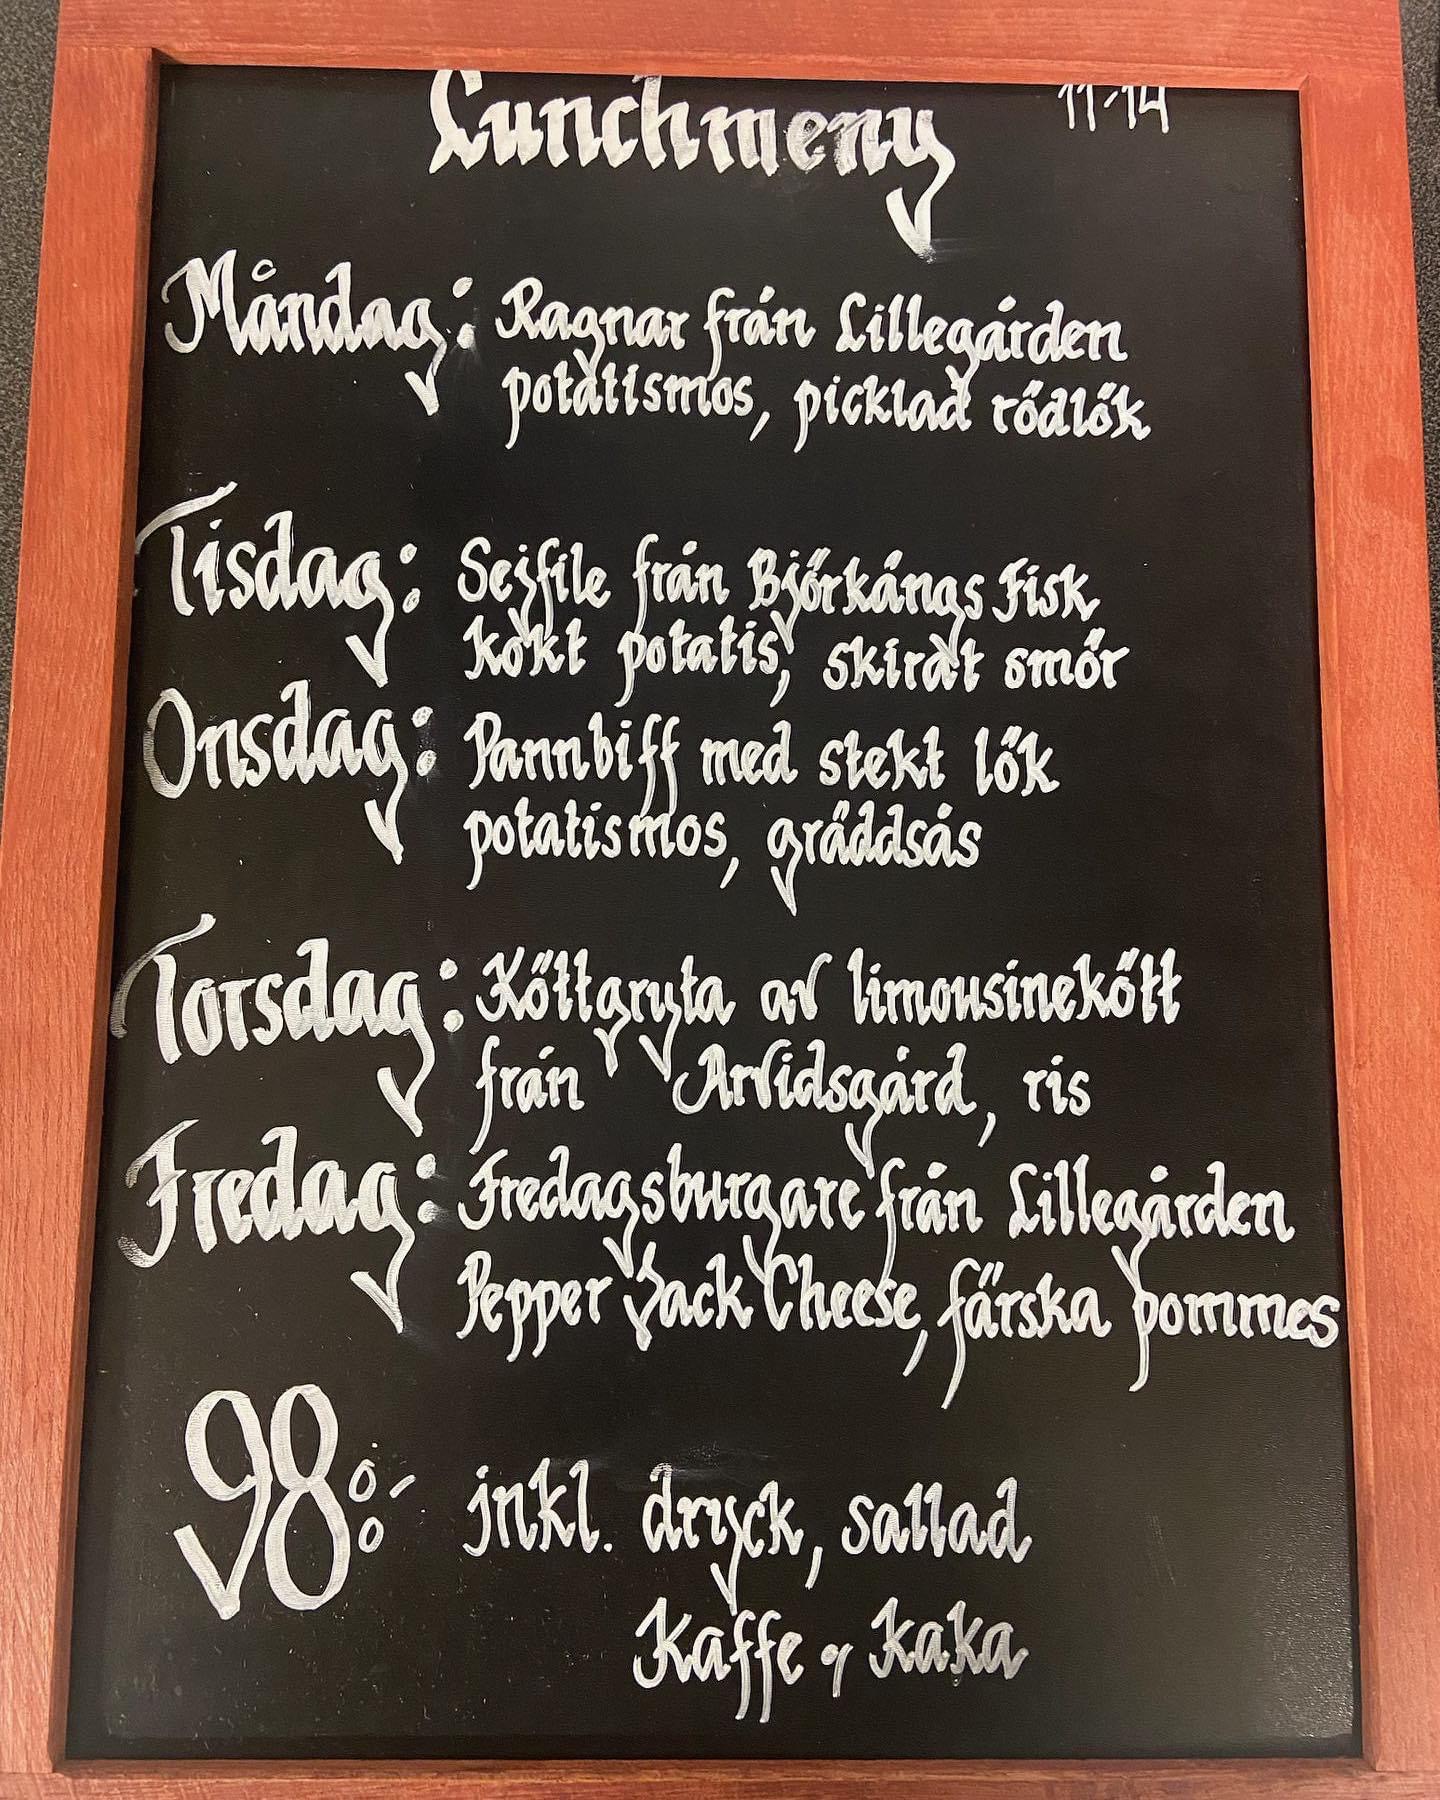 Lunchmeny 11-14
Måndag: Ragnar från Lillegården
potatismos, picklad rödlök
Tisdag: Sejfile från Björkängs Fisk
kokt potatis, skirat smör
Onsdag: Pannbiff med stekt lök
potatismos, gräddsås
Torsdag: Köttgryta av limousinekött
från Arvidsgård, ris
Fredag: Fredagsburgare från Lillegården
Pepper Jack Cheese, färska pommes
98:- inkl. dryck, sallad
Kaffe o kaka